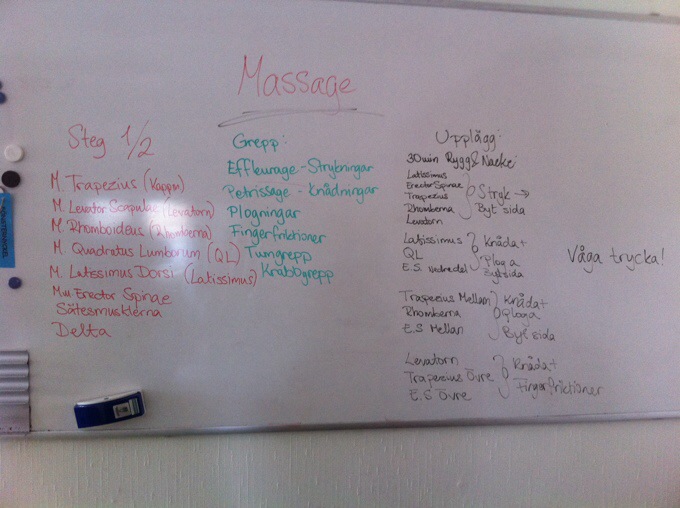 Massage
Steg 1/2
M. Trapezius (Kappm)
M. Levator Scapulae (Levatorn)
M. Rhomboideus (Rhomberna)
M. Quadratus Lumborum (QL)
M. Latissimus Dorsi (Latissimus)
Mm Erector Spinae
Sätesmusklerna
Delta
Grepp:
Effleurage - Strykningar
Petrissage - Knådningar
Plogningar
Fingerfriktioner
Tumgrepp
Krabbgrepp
Upplägg:
30min Rygg & Nacke
Latissimus
Erector Spinae
Trapezius
Rhomberna
Levatorn
Stryk →
Byt sida
Latissimus
QL
E.S. nedredel
Knåda+
Ploga
Byt sida
Trapezius Mellan
Rhomberna
E.S Mellan
Knåda+
Ploga
Byt sida
Levatorn
Trapezius Övre
E.S Övre
Knåda+
Fingerfriktioner
Våga trycka!